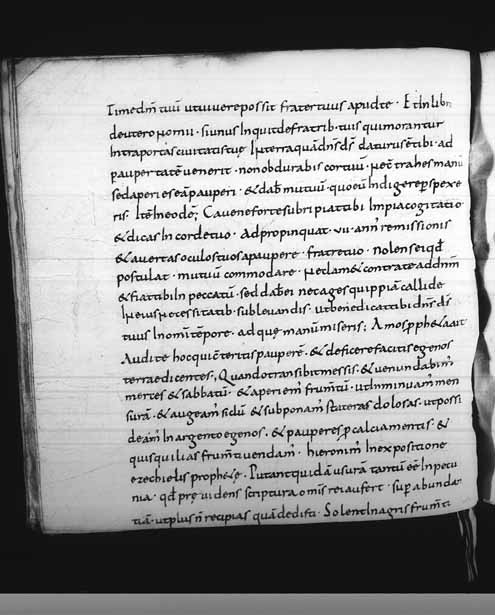 Timedm̄ tuū utuiuerepossit fratertuus apudte · Et In libr
deuteronomii · siunus Inquit defratrib· tuis quimorantur
Intraportas ciuitatistuę Interraquā dn̄s ds̄ daturus ē tibi · ad
paupertatē uenerit · nonobdurabis cortuū · nec̄ trahes manū
sedaperies eā pauperi · & dab̄ mutuū · quo eū Indigere pspexe
ris · Itē Ineodē, Cauene forte subripiat tibi Impia cogitatio
& dicas In cordetuo · Adpropinquat · vii · ann̄ remissionis
& auertas oculos tuos apaupere · fratretuo · nolens ei qd̄
postulat · mutuū commodare · neclam& contrate addnm̄
& fiat tibi In peccatū · sed dabei nec ages quippiā callide
In eius necessitatib· subleuandis · utbenedicat tibi dn̄s ds̄
tuus In omī tēpore · ad quę manū miseris; Amos pph&a ait
Audite hoc qui cōteritis pauperē · & deficere facitis egenos
terrae dicentes, Quando transibit messis · & uenundabim̄
merces & sabbatū · & aperiem̄ frum̄tū · utInminuam̄ men
surā · & augeam̄ siclū & subponam̄ stateras dolosas · ut possi
deam̄ In argento egenos · & pauperes p calciamentis · &
quisquilias frum̄ti uendam̄ · hieronim̄ In expositione
ezechielis proph&ę · Putant quidā usurā tantū eē In pecu
nia · qd̄ pręuidens scriptura omīs rei aufert · sup abundan
tiā · utplus n̄ recipias quā dedisti · Solent In agris frum̄ti